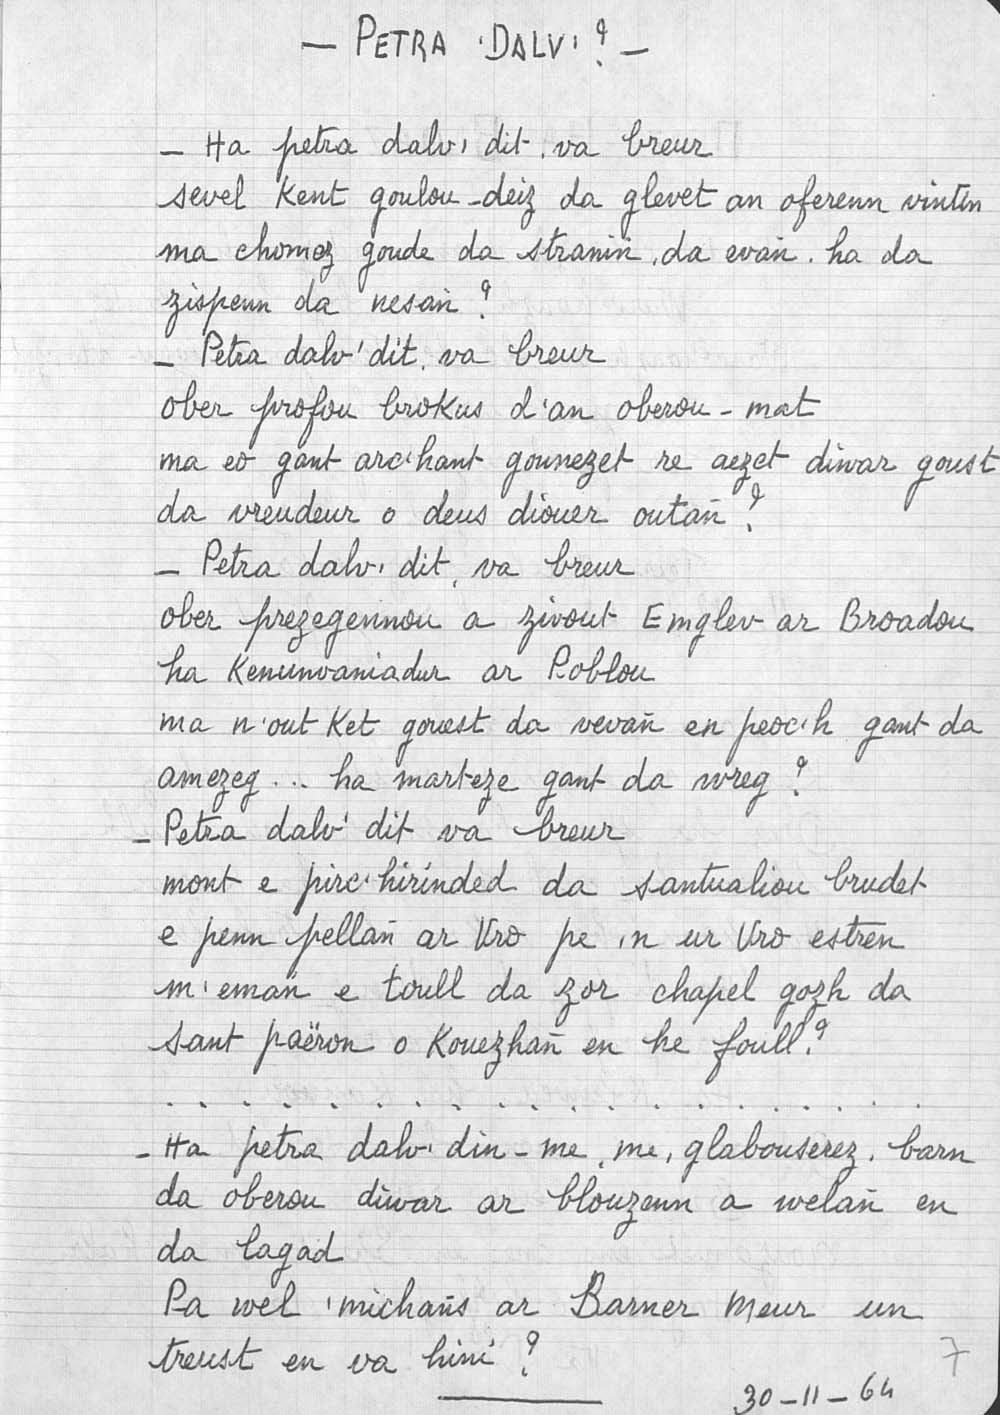 — PETRA 'DALV' ? —
— Ha petra dalv' dit, va breur
sevel kent goulou-deiz da glevet an oferenn vintin
ma chomez goude da stranin, da evañ, ha da
zispenn da nesañ ?
— Petra dalv' dit, va breur
ober profou brokus d'an oberou-mat
ma eo gant arc'hant gounezet re aezet diwar goust
da vreudeur o deus diouer outañ ?
— Petra dalv' dit, va breur
ober prezegennou a zivout Emglev ar Broadou
ha Kenunvaniadur ar Poblou
ma n'out ket gouest da vevañ en peoc'h gant da
amezeg... ha marteze gant da wreg ?
— Petra dalv' dit va breur
mont e pirc'hirinded da santualiou brudet
e penn pellañ ar Vro pe 'n ur Vro estren
m'emañ e toull da zor chapel gozh da
sant paëron o kouezhañ en he foull ?
. . . . . . . . . . . . . . . . . .
— Ha petra dalv' din-me, me, glabouserez, barn
da oberou diwar ar blouzenn a welañ en
da lagad
Pa wel 'michañs ar Barner Meur un
treust en va hini ?
7
30-11-64